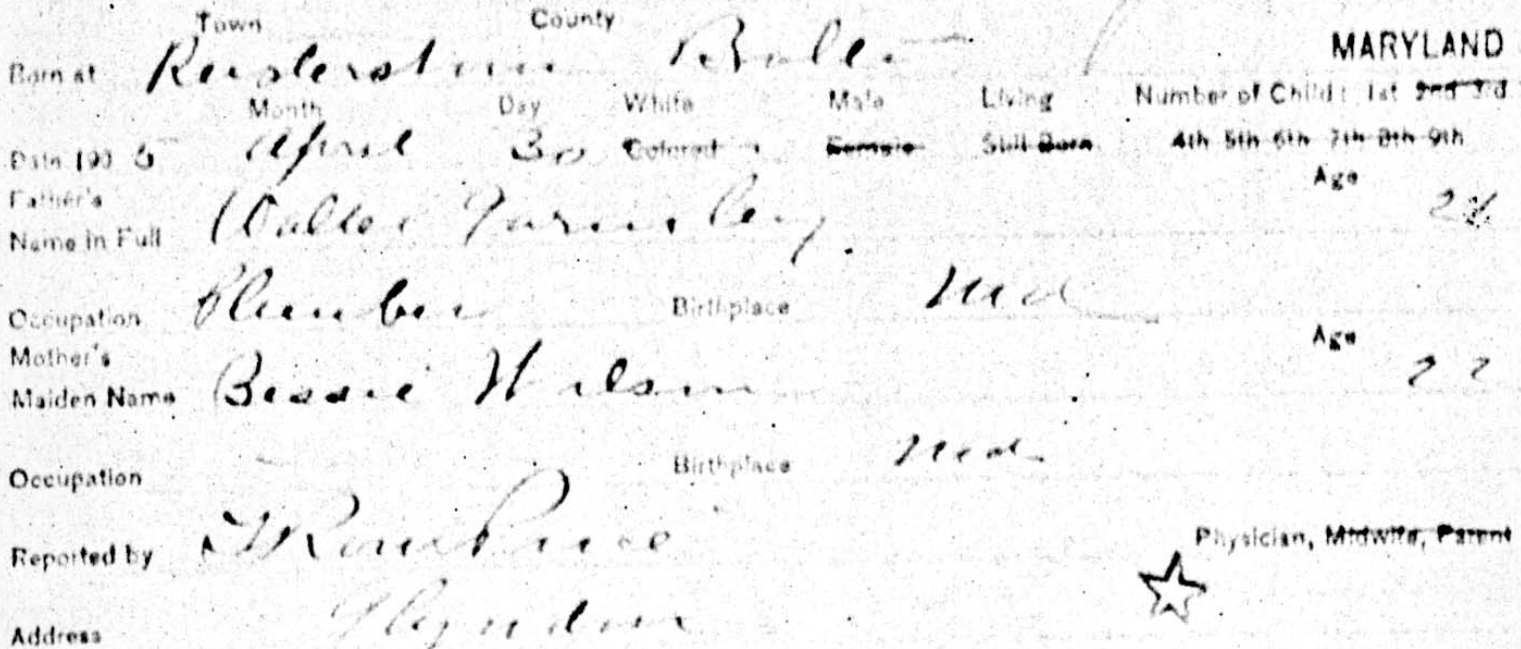 Town County
Born at Reisterstown Balto MARYLAND
Month Day White Male Living Number of Child: 1st 2nd 3rd
Date 190 5 April 30 Colored Female Still Born 4th 5th 6th 7th 8th 9th
Father's Age
Name in Full Walter
Occupation Plumber Birthplace Md
Mother's Age
Maiden Name Bessie Wilson 22
Occupation Birthplace Md
Reported by Physician, Midwife, Parent
Address Glyndon